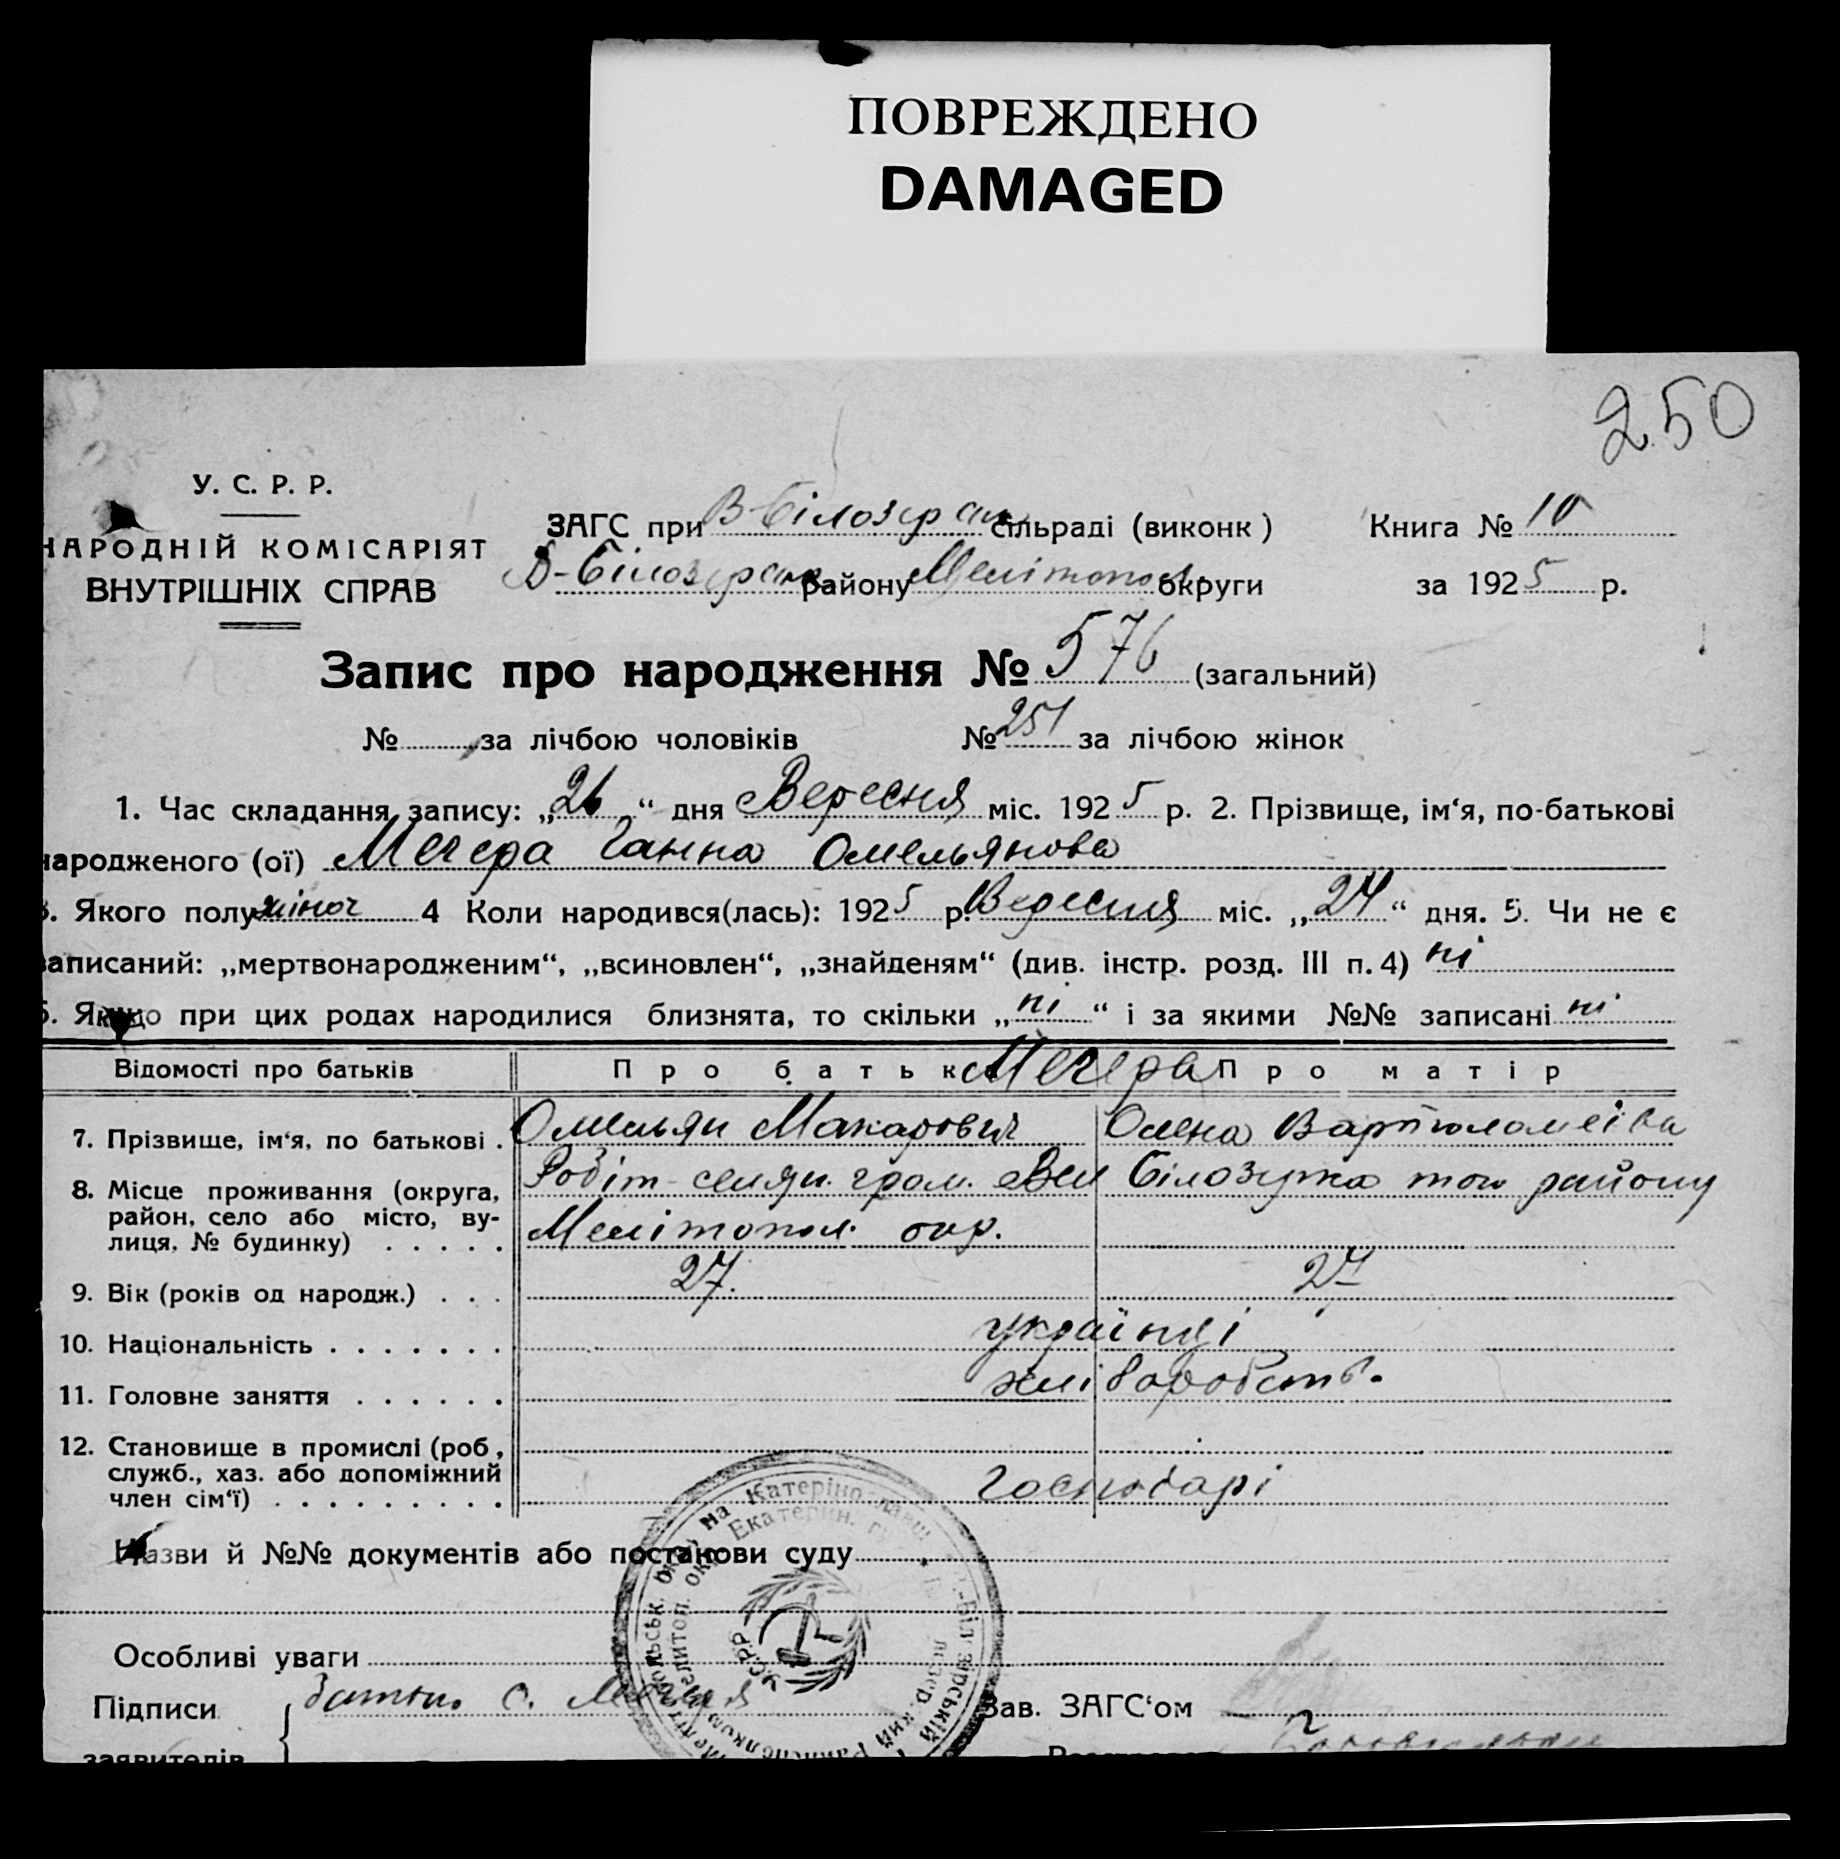 ПОВРЕЖДЕНО
DAMAGED
250
У. С. Р. Р.
НАРОДНІЙ КОМІСАРІЯТ
ВНУТРІШНІХ СПРАВ
ЗАГС при В-Білозерськ сільраді (виконк) Книга № 10
В-Білозерськ району Мелітополь округи за 1925 р.
Запис про народження № 576 (загальний)
№ за лічбою чоловіків № 251 за лічбою жінок
1. Час складання запису: „26“ дня Вересня міс. 1925 р. 2. Прізвище, ім‘я, по-батькові
народженого (ої) Мегера Ганна Омельянова
3. Якого полу жіноч 4 Коли народився(лась): 1925 р. Вересня міс. „24“ дня. 5. Чи не є
записаний: „мертвонародженим“, „всиновлен“, „знайденям“ (див. інстр. розд. III п. 4) ні
6. Якщо при цих родах народилися близнята, то скільки „ні“ і за якими №№ записані ні
Відомості про батьків Про батька Мегера Про матір
7. Прізвище, ім‘я, по батькові . Омельян Макарович Олена Вартоломеїва
8. Місце проживання (округа, Робіт-селян. гром. Вел Білозірка того району
район, село або місто, ву- Мелітопол. окр.
лиця, № будинку) . . . . .
9. Вік (років од народж.) . . . 27. 27
10. Національність . . . . . . . українці
11. Головне заняття . . . . . . хліборобств.
12. Становище в промислі (роб.,
служб., хаз. або допоміжний Господарі
член сім‘ї) . . . . . . . . .
Назви й №№ документів або постанови суду
Особливі уваги
Підписи Батько О. Зав. ЗАГС‘ом
заявителів